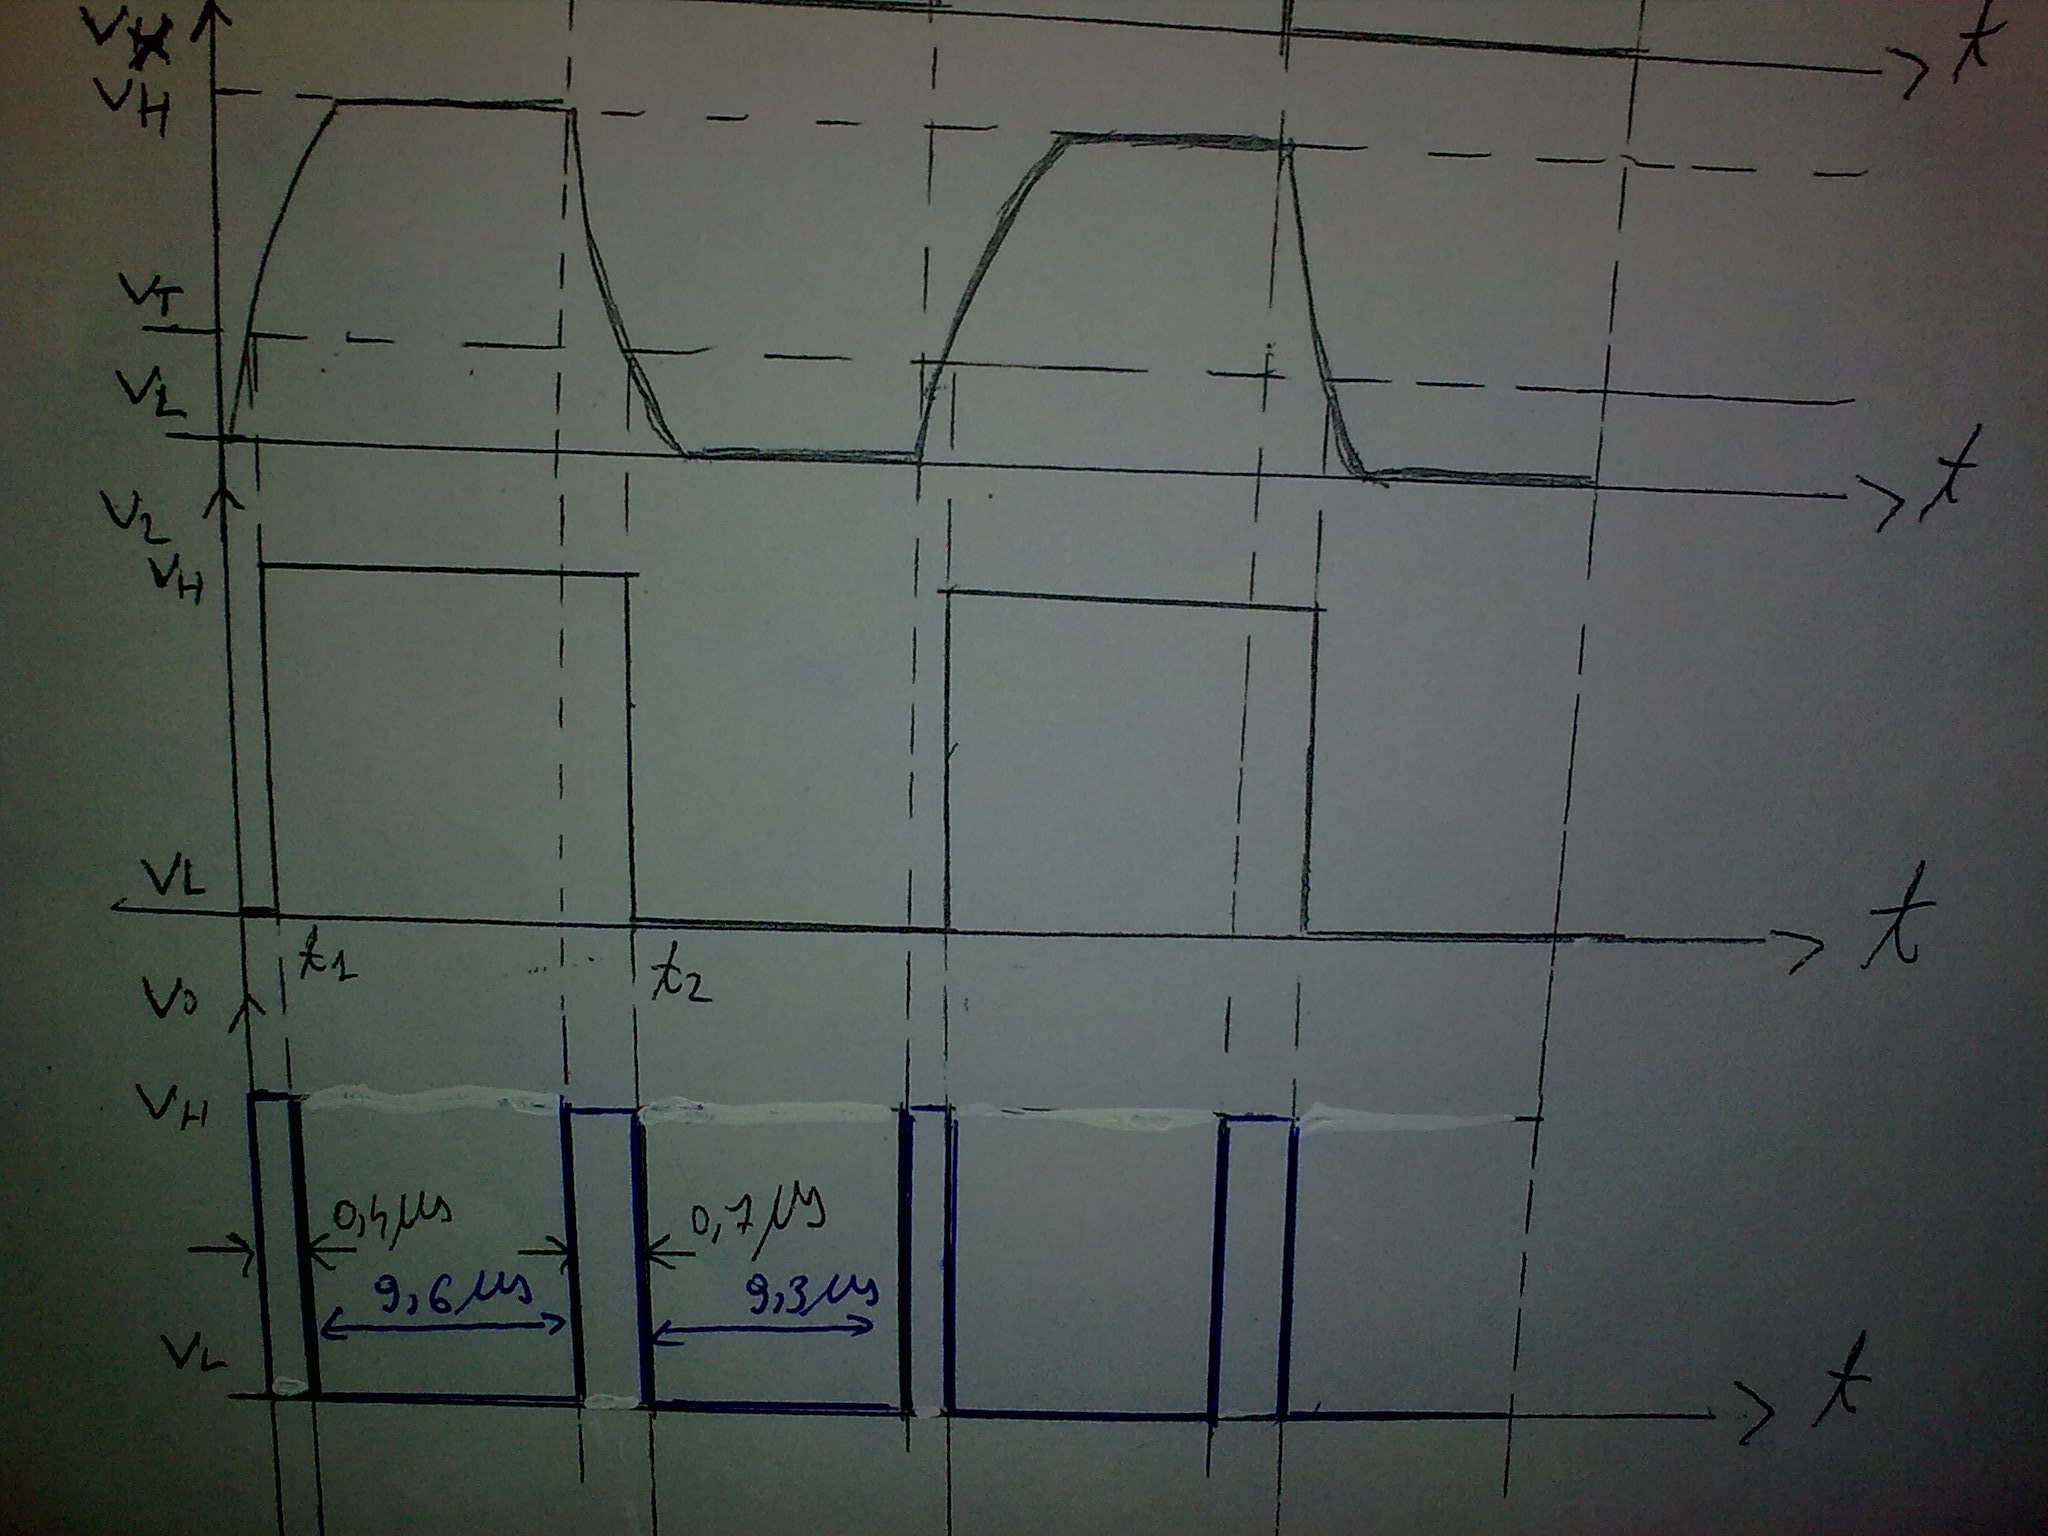 VX
t
VH
VT
VL
t
V2
VH
VL
t
t1
t2
V0
VH
0,4μs
0,7μs
9,6μs
9,3μs
VL
t